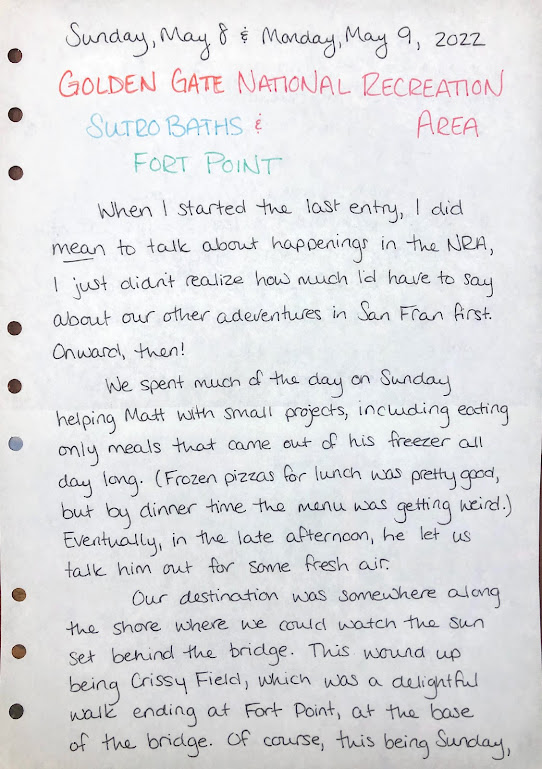 Sunday, May 8 & Monday, May 9, 2022
GOLDEN GATE NATIONAL RECREATION
SUTRO BATHS & AREA
FORT POINT
When I started the last entry, I did
mean to talk about happenings in the NRA,
I just didn't realize how much I'd have to say
about our other adeventures in San Fran first.
Onward, then!
We spent much of the day on Sunday
helping Matt with small projects, including eating
only meals that came out of his freezer all
day long. (Frozen pizzas for lunch was pretty good,
but by dinner time the menu was getting weird.)
Eventually, in the late afternoon, he let us
talk him out for some fresh air.
Our destination was somewhere along
the shore where we could watch the sun
set behind the bridge. This wound up
being Crissy Field, which was a delightful
walk ending at Fort Point, at the base
of the bridge. Of course, this being Sunday,